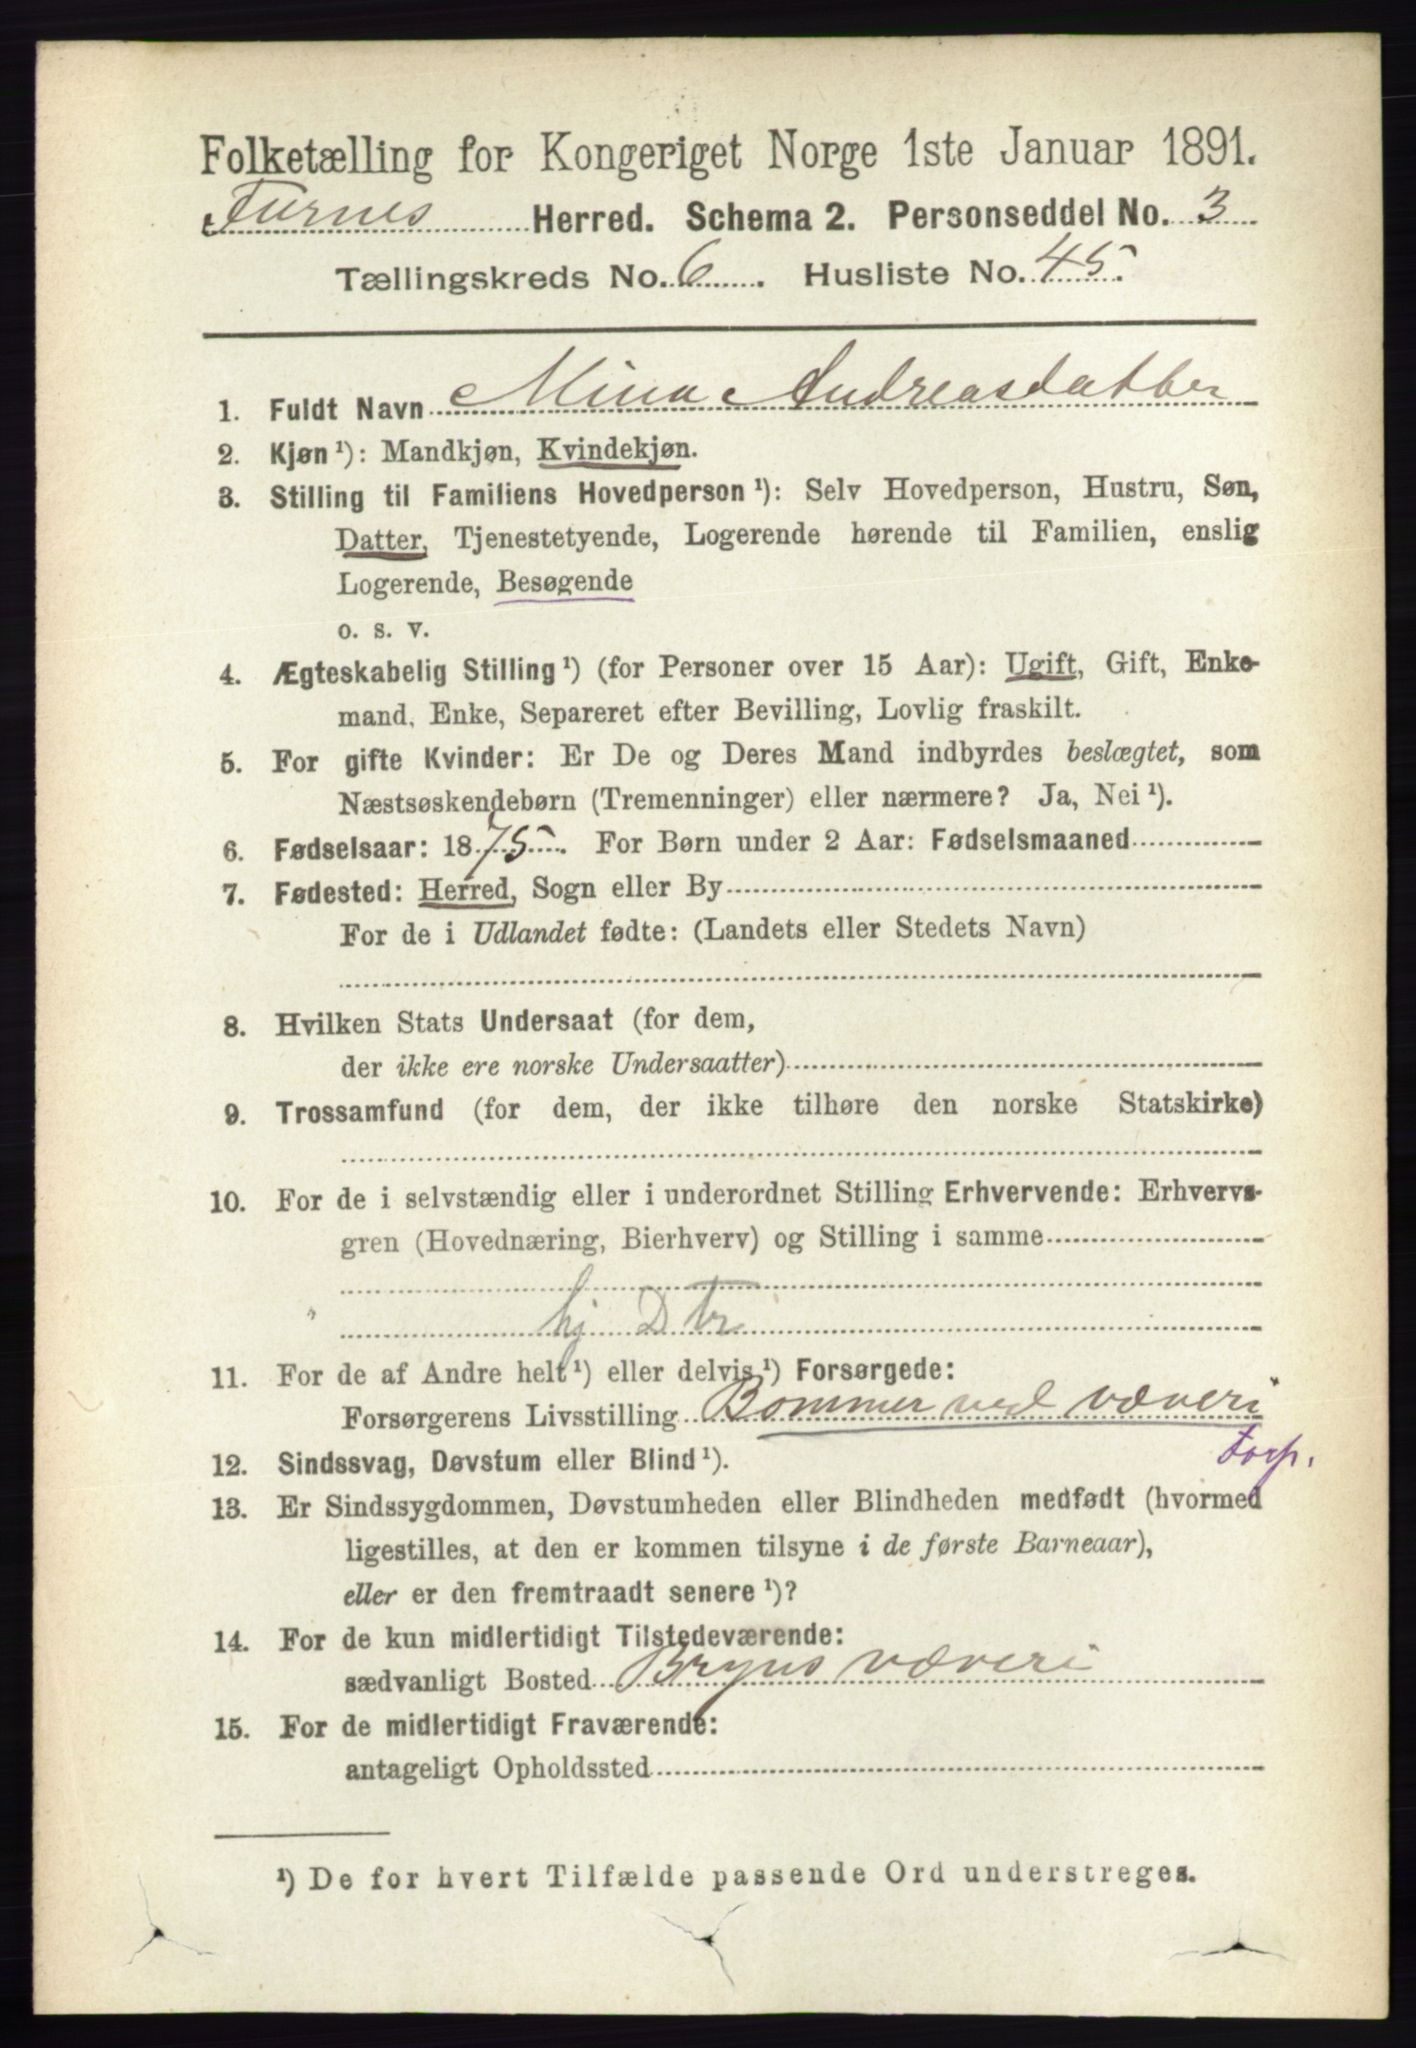 Folketælling for Kongeriget Norge 1ste Januar 1891.
Furnes Herred. Schema 2. Personseddel No. 3
Tællingskreds No. 6. Husliste No. 45.
1. Fuldt Navn Mina Andreasdatter
2. Kjøn ¹): Mandkjøn, Kvindekjøn.
3. Stilling til Familiens Hovedperson ¹): Selv Hovedperson, Hustru, Søn,
Datter, Tjenestetyende, Logerende hørende til Familien, enslig
Logerende, Besøgende
o. s. v.
4. Ægteskabelig Stilling ¹) (for Personer over 15 Aar): Ugift, Gift, Enke-
mand, Enke, Separeret efter Bevilling, Lovlig fraskilt.
5. For gifte Kvinder: Er De og Deres Mand indbyrdes beslægtet, som
Næstsøskendebørn (Tremenninger) eller nærmere? Ja, Nei ¹).
6. Fødselsaar: 1875. For Børn under 2 Aar: Fødselsmaaned
7. Fødested: Herred, Sogn eller By
For de i Udlandet fødte: (Landets eller Stedets Navn)
8. Hvilken Stats Undersaat (for dem,
der ikke ere norske Undersaatter)
9. Trossamfund (for dem, der ikke tilhøre den norske Statskirke)
10. For de i selvstændig eller i underordnet Stilling Erhvervende: Erhvervs-
gren (Hovednæring, Bierhverv) og Stilling i samme
hj. Dtr
11. For de af Andre helt ¹) eller delvis ¹) Forsørgede:
Forsørgerens Livsstilling Bommer ved væveri
Forsp.
12. Sindssvag, Døvstum eller Blind ¹).
13. Er Sindssygdommen, Døvstumheden eller Blindheden medfødt (hvormed
ligestilles, at den er kommen tilsyne i de første Barneaar),
eller er den fremtraadt senere ¹)?
14. For de kun midlertidigt Tilstedeværende:
sædvanligt Bosted Bryns væveri
15. For de midlertidigt Fraværende:
antageligt Opholdssted
¹) De for hvert Tilfælde passende Ord understreges.